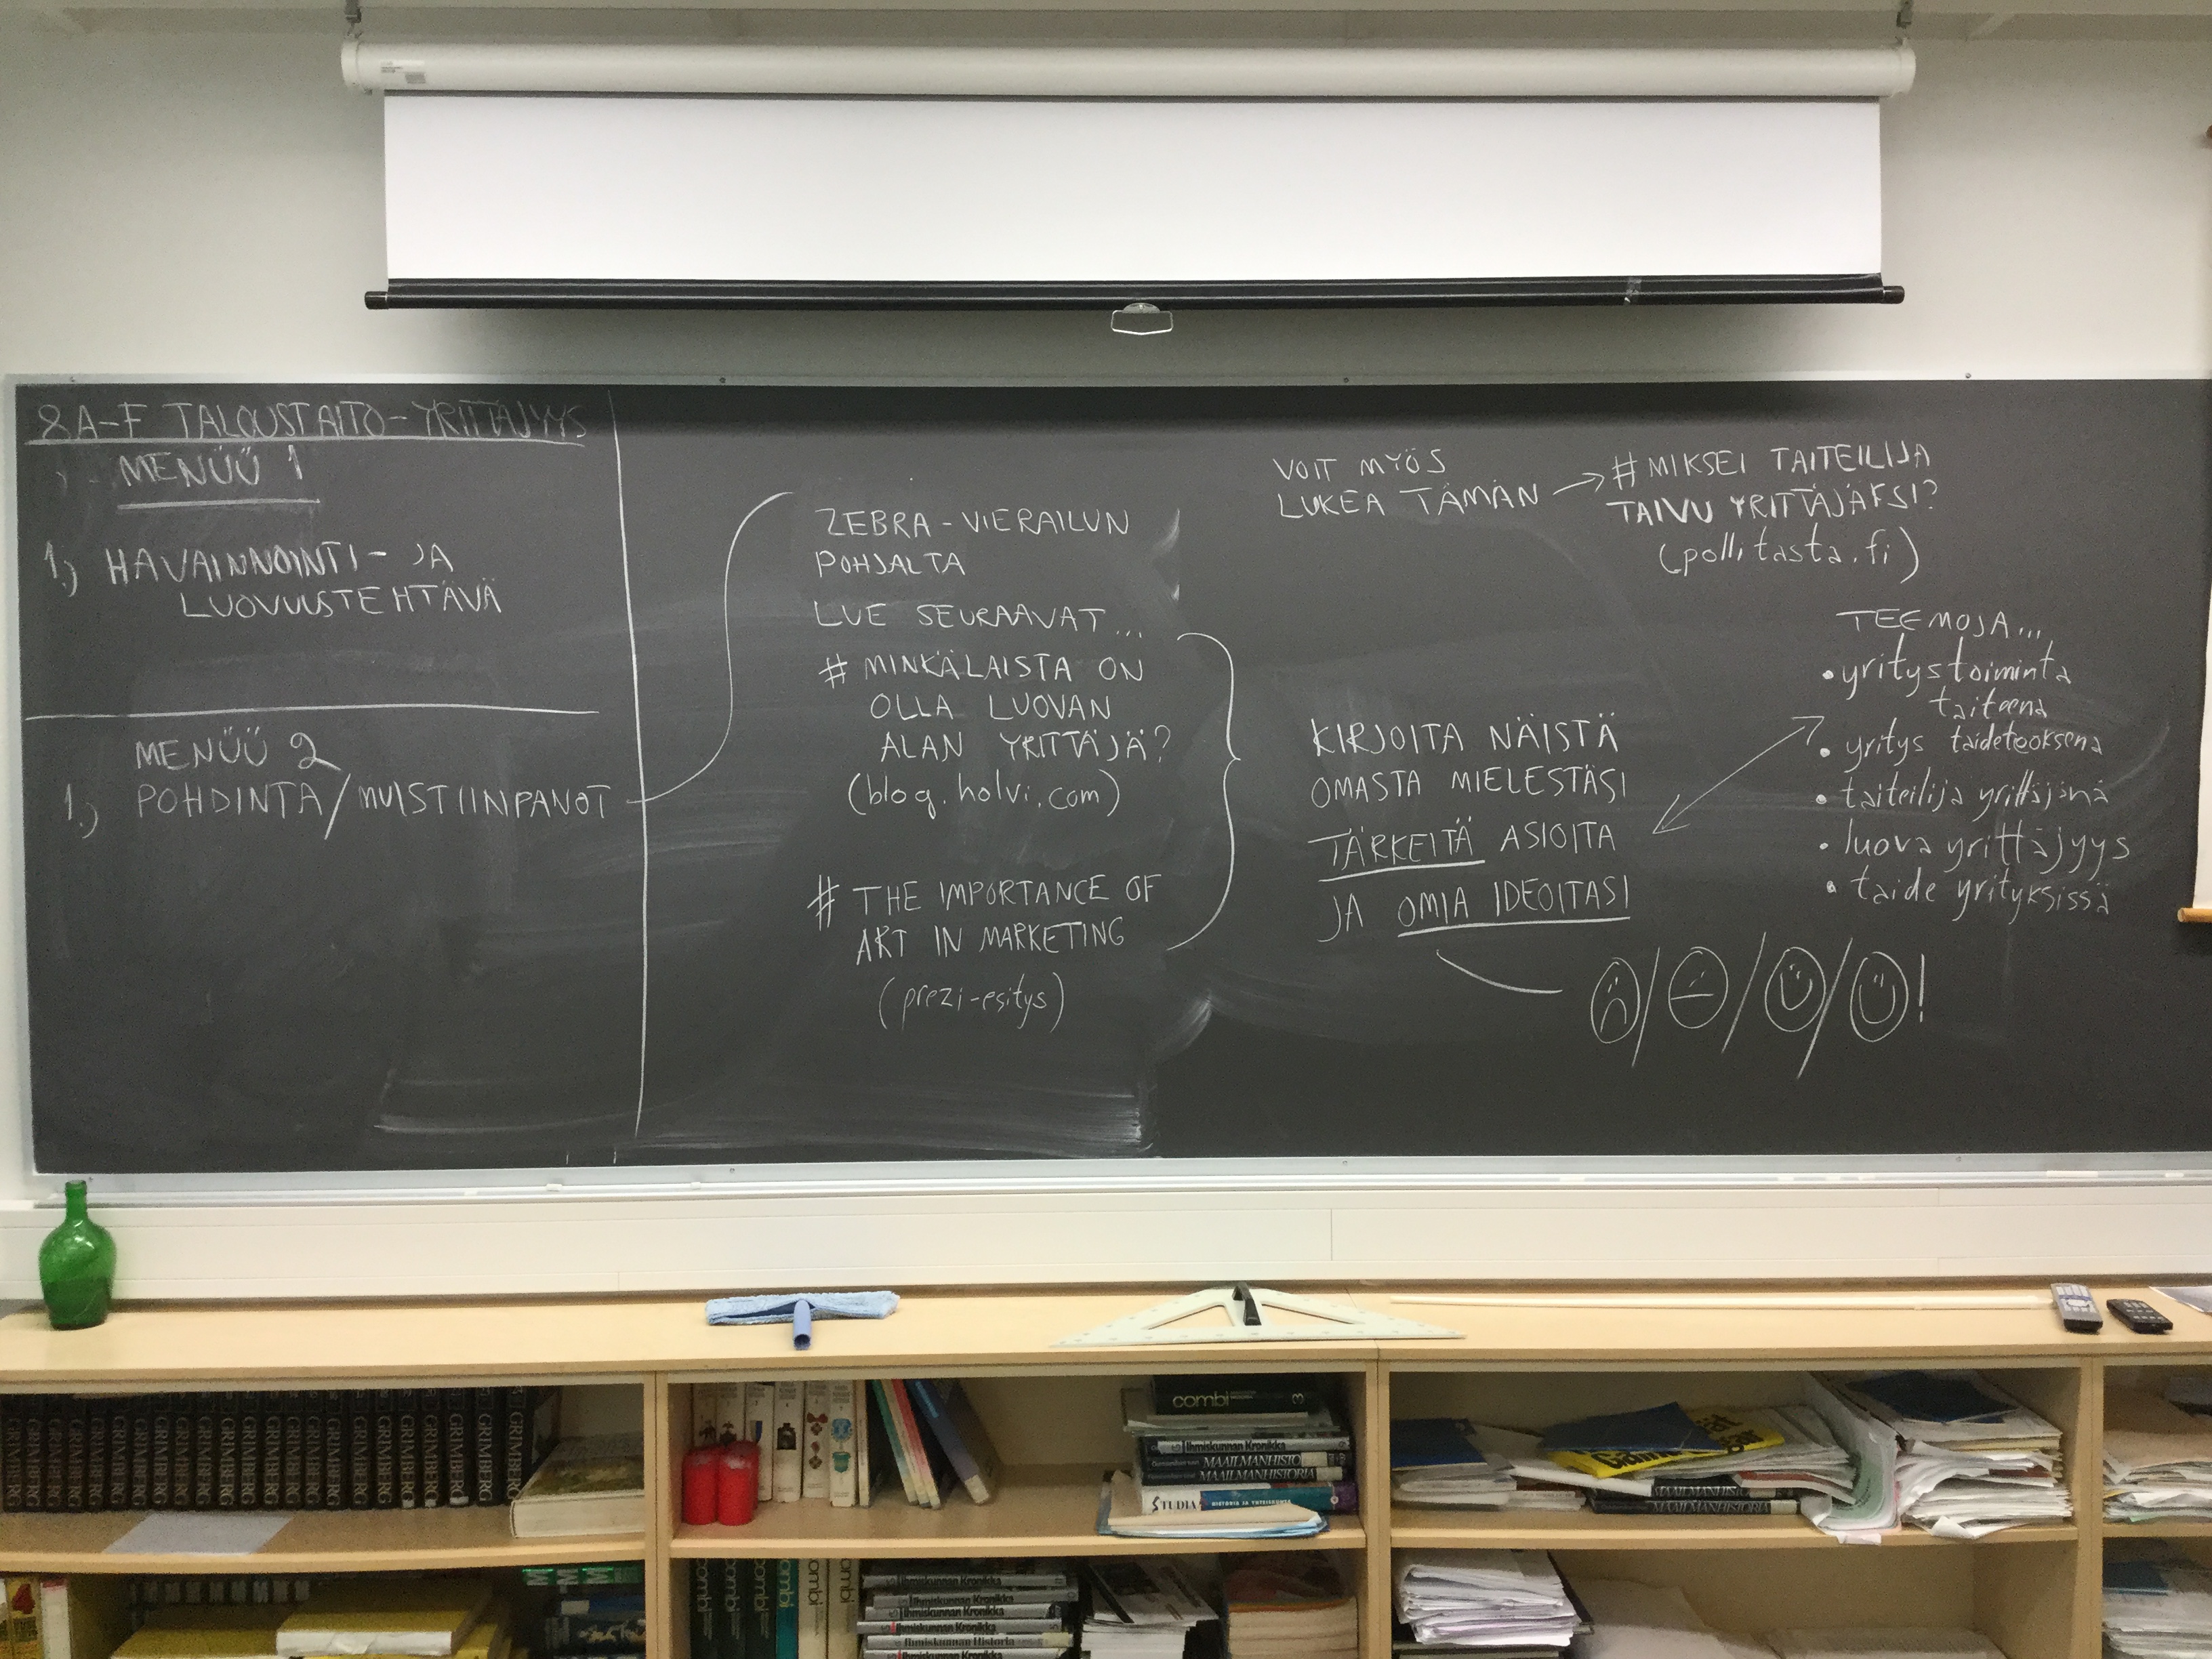 8A-F TALOUSTAITO-YRITTÄJYYS
MENÜÜ 1
1.) HAVAINNOINTI- JA
LUOVUUSTEHTÄVÄ
MENÜÜ 2
1.) POHDINTA/MUISTIINPANOT
ZEBRA-VIERAILUN
POHJALTA
LUE SEURAAVAT...
# MINKÄLAISTA ON
OLLA LUOVAN
ALAN YRITTÄJÄ?
(blog.holvi.com)
# THE IMPORTANCE OF
ART IN MARKETING
(prezi-esitys)
VOIT MYÖS
LUKEA TÄMÄN
# MIKSEI TAITEILIJA
TAIVU YRITTÄJÄKSI?
(pollitasta.fi)
KIRJOITA NÄISTÄ
OMASTA MIELESTÄSI
TÄRKEITÄ ASIOITA
JA OMIA IDEOITASI
TEEMOJA...
• yritystoiminta
taiteena
• yritys taideteoksena
• taiteilija yrittäjänä
• luova yrittäjyys
• taide yrityksissä
/ / / !
GRIMBERG GRIMBERG GRIMBERG GRIMBERG GRIMBERG GRIMBERG GRIMBERG GRIMBERG GRIMBERG
combi 3
Ihmiskunnan Kronikka
MAAILMANHISTO
MAAILMANHISTORIA
STUDIA HISTORIA JA YHTEISKUNTA
MAAILMANHISTO
MAAILMANHISTORIA
combi combi combi
Ihmiskunnan Kronikka
Ihmiskunnan Kronikka
Ihmiskunnan Kronikka
Ihmiskunnan Kronikka
Ihmiskunnan Historia